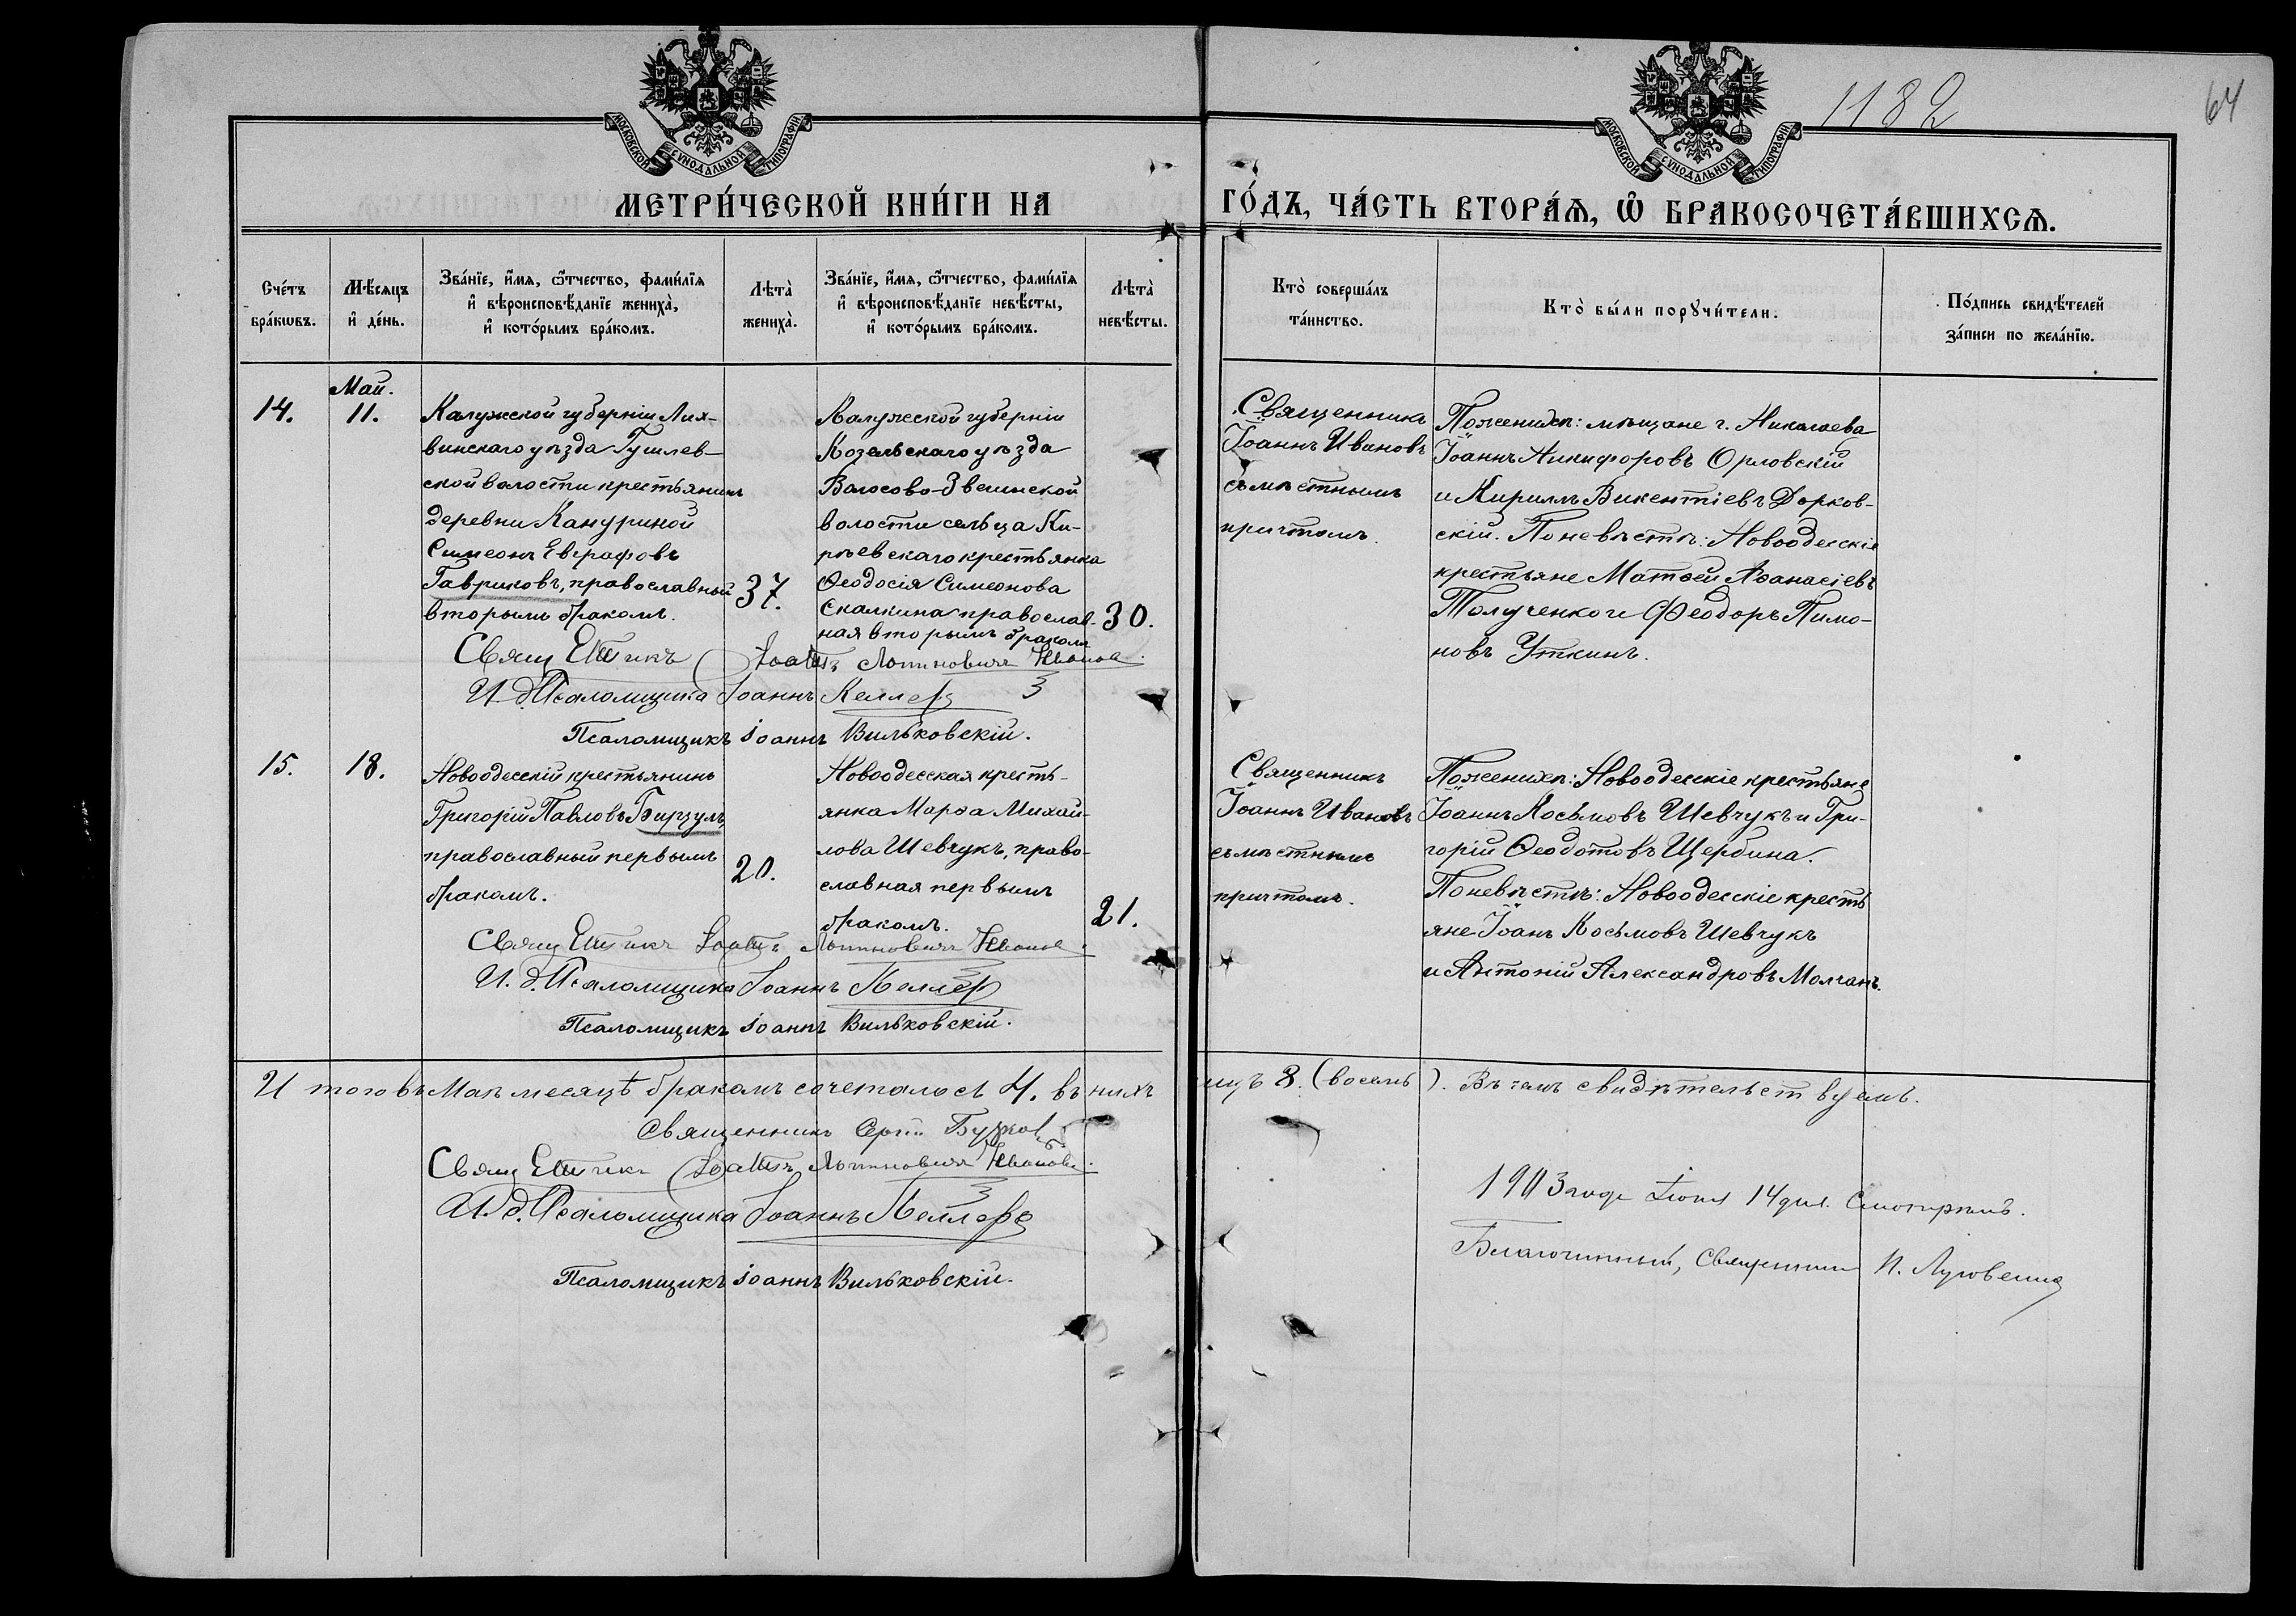 1182
64
МОСКОВСКОЙ СУНОДАЛЬНОЙ ТИПОГРАФІИ
МОСКОВСКОЙ СУНОДАЛЬНОЙ ТИПОГРАФІИ
МЕТРИ́ЧЕСКОЙ КНИ́ГИ НА
ГО́ДЪ, ЧА́СТЬ ВТОРА́Ѧ, Ѡ҆ БРАКОСОЧЕТА́ВШИХСѦ.
Сче́тъ
бра́кѡвъ.
Мѣ́сѧцъ
и҆ де́нь.
Зва́нїе, и҆́мѧ, ѻ҆́тчество, фами́лїѧ
и҆ вѣроисповѣ́данїе жениха̀,
и҆ кото́рымъ бра́комъ.
Лѣта̀
жениха̀.
Зва́нїе, и҆́мѧ, ѻ҆́тчество, фами́лїѧ
и҆ вѣроисповѣ́данїе невѣ́сты,
и҆ кото́рымъ бра́комъ.
Лѣта̀
невѣ́сты.
Кто̀ соверша́лъ
та́инство.
Кто̀ бы́ли порꙋчи́тели.
По́дпись свидѣ́телей
за́писи по жела́нїю.
14.
Май.
11.
Калужской губерніи Лих-
винскаго уѣзда Гушлев-
ской волости крестьянинъ
деревни Кануриной
Симеонъ Евграфовъ
Гавриковъ, православный
вторымъ бракомъ.
37.
Калужской губерніи
Козельскаго уѣзда
Волосово-Звегинской
волости сельца Ки-
рѣевскаго крестьянка
Ѳеодосія Симеонова
Скалкина православ-
ная вторымъ бракомъ
30.
Священникъ
Іоаннъ Ивановъ
съ мѣстнымъ
причтомъ.
По женихѣ: мѣщане г. Николаева
Іоаннъ Никифоровъ Орловскій
и Кириллъ Викентіевъ Дорков-
скій. По невѣстѣ: Новоодесскіе
крестьяне Матѳей Аѳанасіевъ
Толученко и Феодоръ Пимо-
новъ Уткинъ.
Священникъ Іоаннъ Логиновичъ Ивановъ
И. д. Псаломщика Іоаннъ Келлеръ
Псаломщикъ Іоаннъ Вильковскій.
15.
18.
Новоодесскій крестьянинъ
Григорій Павловъ Бирзулъ
православный первымъ
бракомъ.
20.
Новоодесская кресть-
янка Марѳа Михай-
лова Шевчукъ, право-
славная первымъ
бракомъ.
21.
Священникъ
Іоаннъ Ивановъ
съ мѣстнымъ
причтомъ.
По женихѣ: Новоодесскіе крестьяне
Іоаннъ Косьмовъ Шевчукъ и Гри-
горій Ѳеодотовъ Щербина.
По невѣстѣ: Новоодесскіе кресть
яне Іоанъ Косьмовъ Шевчукъ
и Антоній Александровъ Молчанъ.
Священникъ Іоаннъ Логиновичъ Ивановъ
И. д. Псаломщика Іоаннъ Келлеръ
Псаломщикъ Іоаннъ Вильковскій.
Итого въ Маѣ месяцѣ бракомъ сочеталось 4. въ нихъ лицъ 8. (восемь). Въ чемъ свидѣтельствуемъ.
Священникъ Сергій
Священникъ Іоаннъ Логиновичъ Ивановъ.
И. д. Псаломщика Іоаннъ Келлеръ
Псаломщикъ Іоаннъ Вильковскій.
1903 года Іюня 14 дня. Смотрѣлъ.
Благочинный, Священникъ